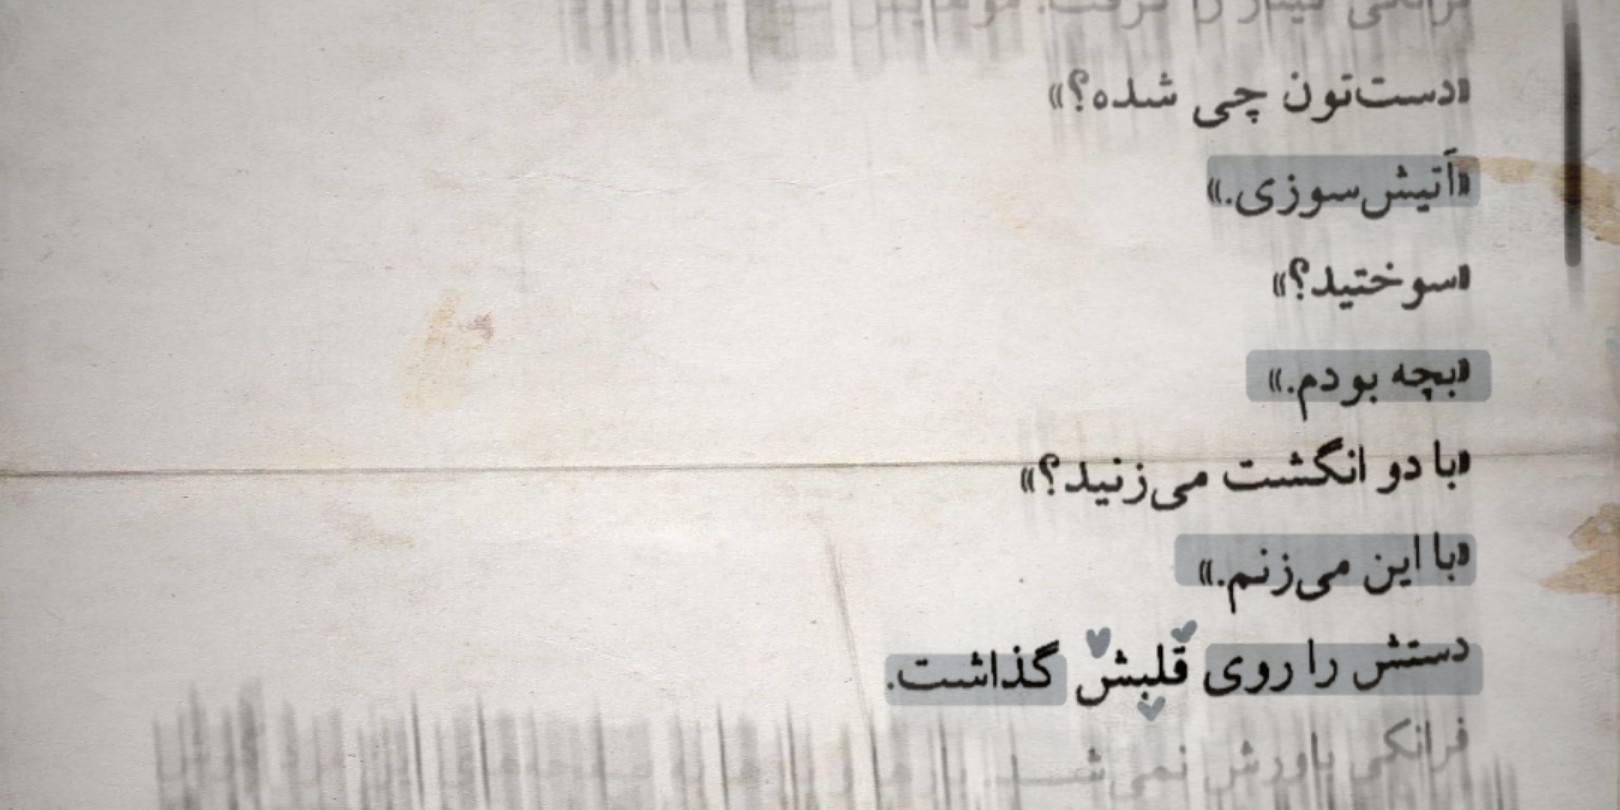 فرانکی گیتار را گرفت.
«دست‌تون چی شده؟»
«آتیش‌سوزی.»
«سوختید؟»
«بچه بودم.»
«با دو انگشت می‌زنید؟»
«با این می‌زنم.»
دستش را روی قلبش گذاشت.
فرانکی باورش نمی‌شد.